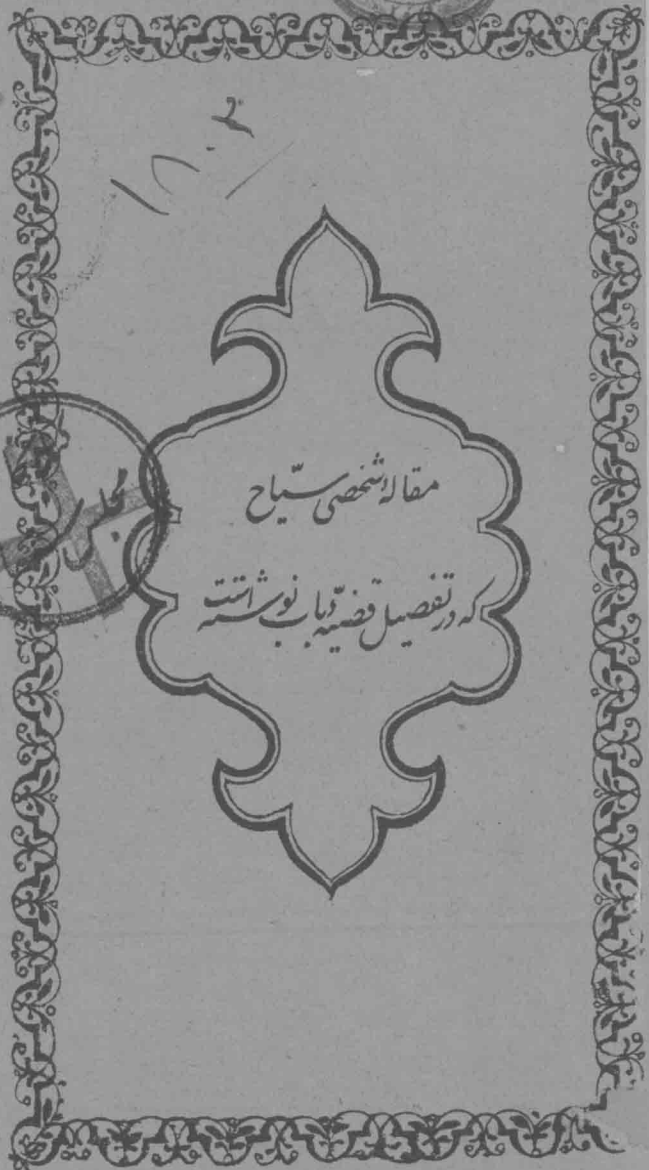 ۱۸۰۲
مقالهٔ شخصی سیّاح
که در تفصیل قضیّه باب نوشته است
مجلس